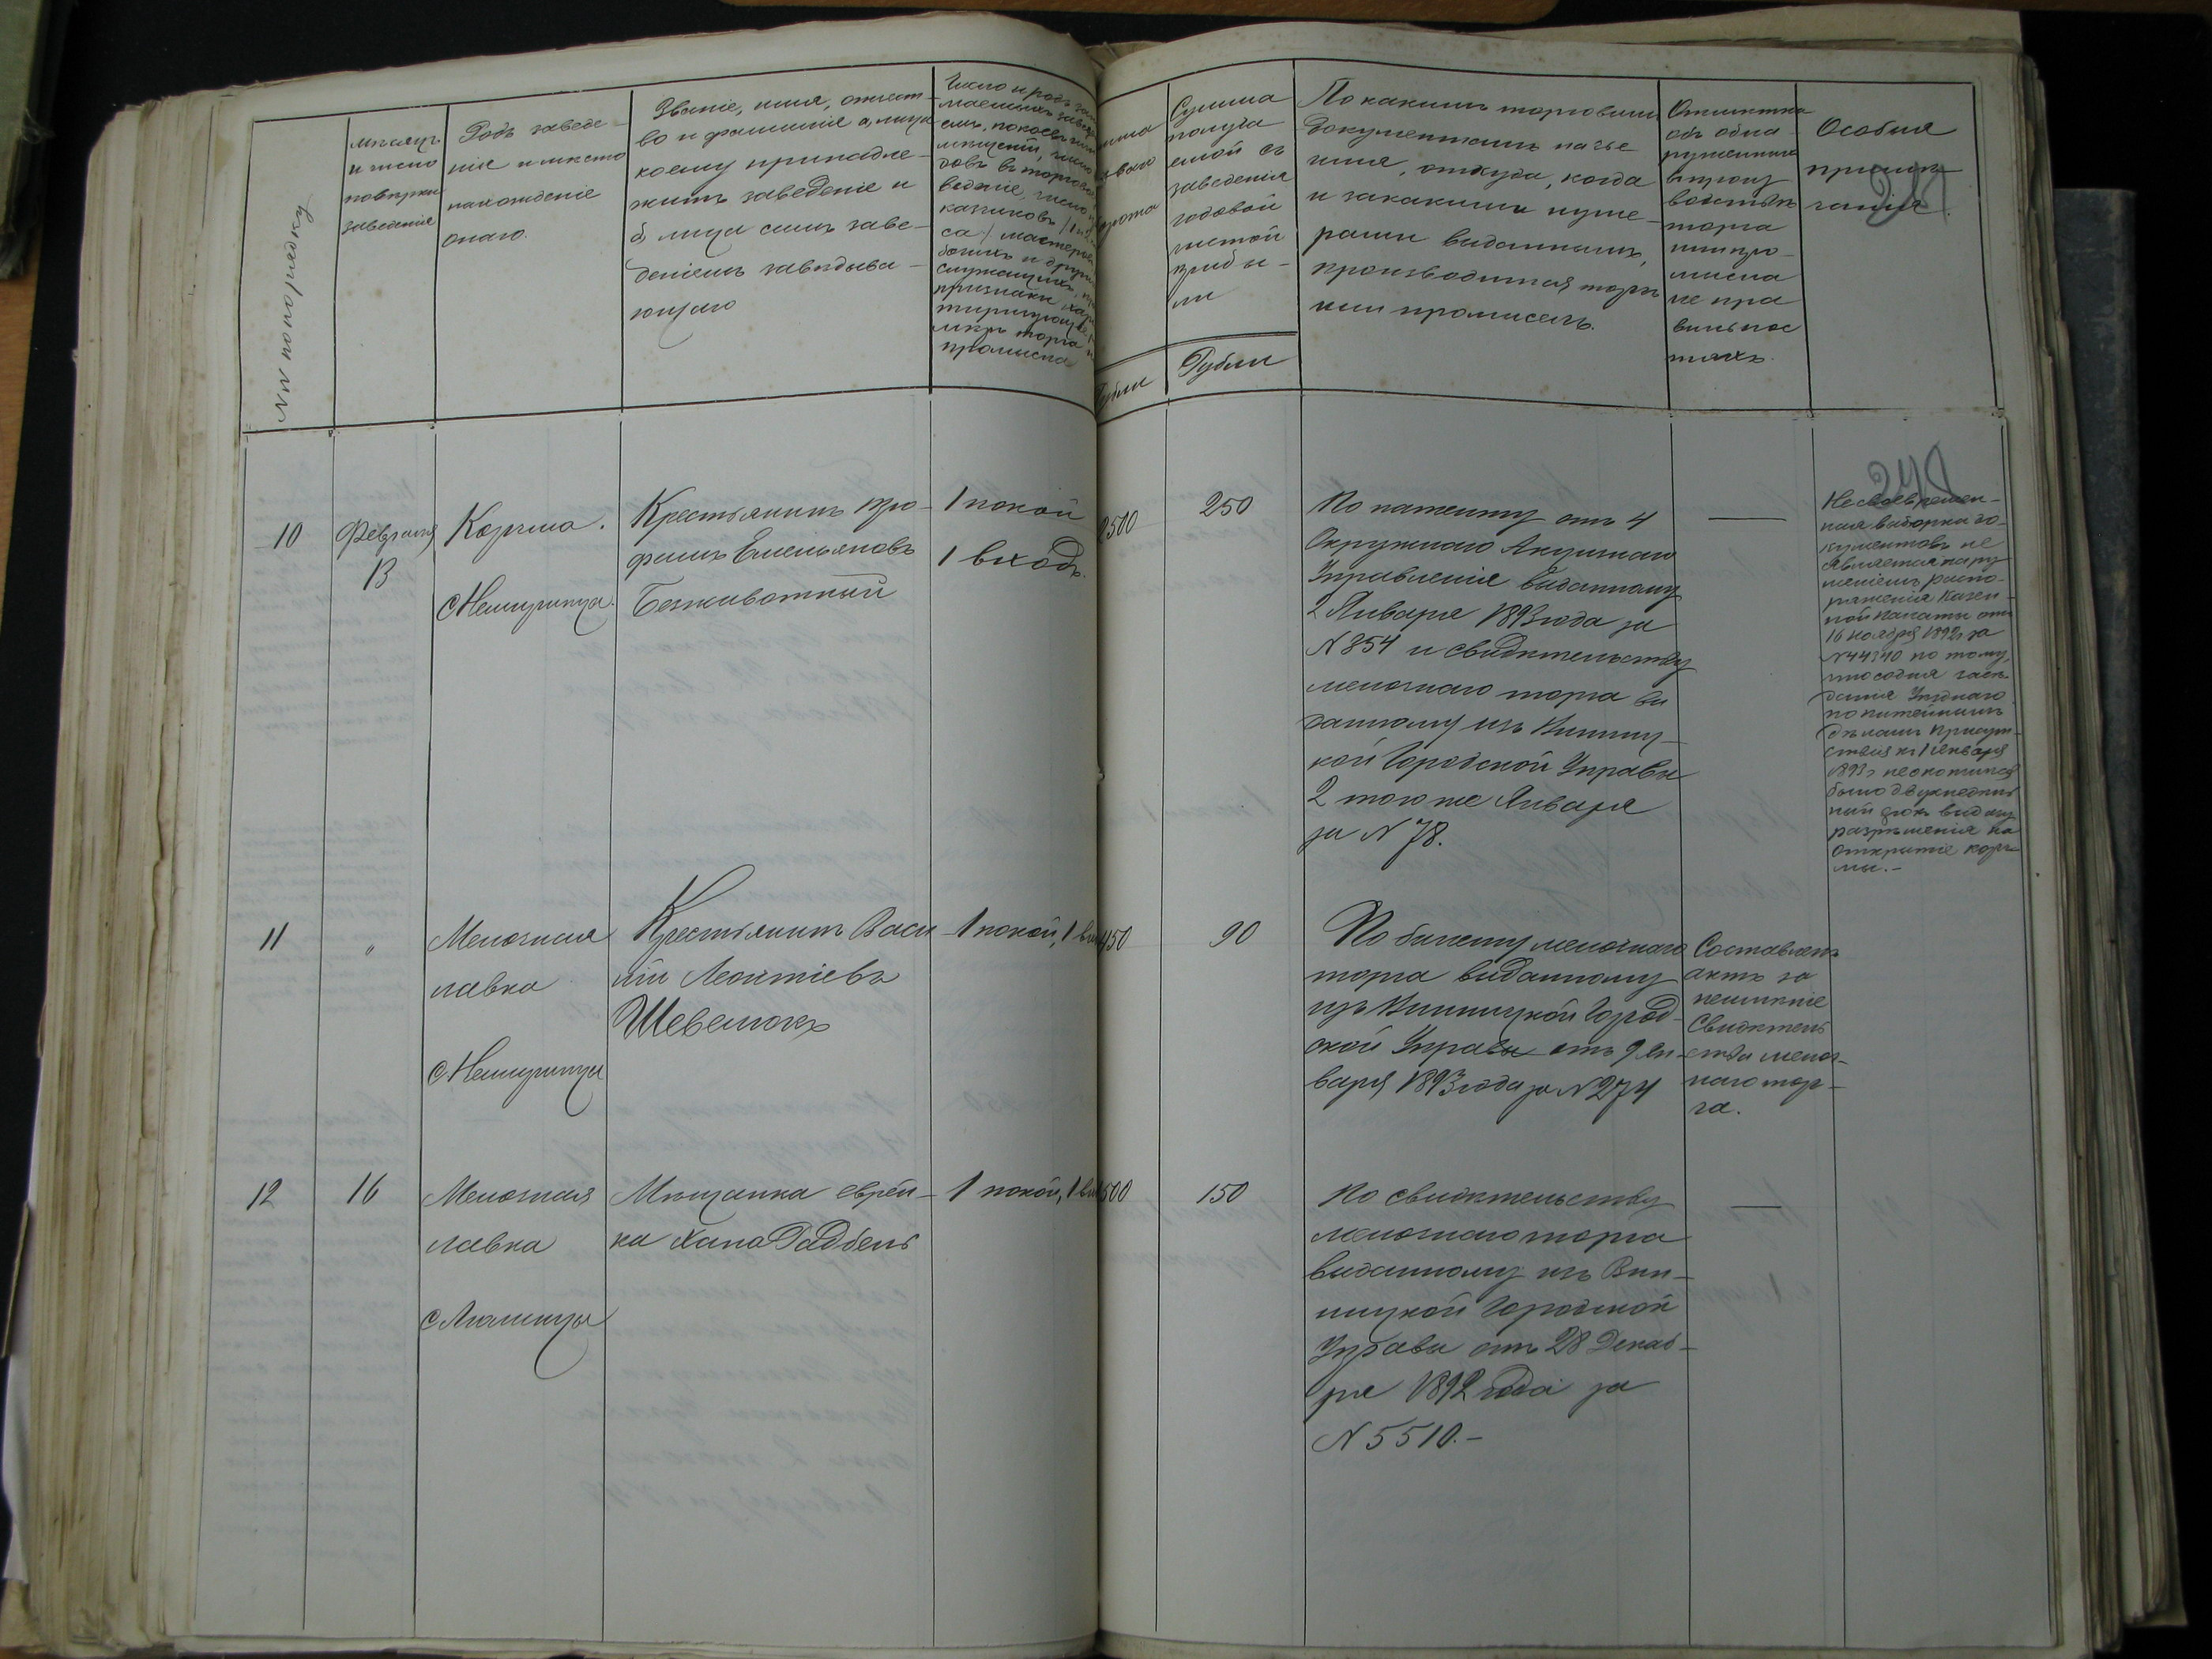 NN по порядку
Мѣсяцъ
и число
повѣрки
заведенія
Родъ заведе-
нія и мѣсто
нахожденіе
онаго.
Званіе, имя, отчест-
во и фамилія а, лица
коему принадле-
житъ заведеніе и
б, лица симъ заве-
деніемъ завѣдыва-
ющаго
Число и родъ
мѣщеній,
промысла
Рубли
Сумма
получа
емой съ
заведенія
годовой
чистой
прибы-
ли
Рубли
По какимъ торговымъ
документамъ на чье
имя, откуда, когда
и за какими нуме-
рами выданнымъ,
производится торгъ
или промыселъ.
Отмѣтка
объ обна-
руженныхъ
въ произ
водствѣ
торга
или про-
мысла
не пра
вильнос
тяхъ.
Особыя
примѣ-
чанія.
10
Февраля
13
Корчма.
с Немиринцы.
Крестьянинъ Тро-
фимъ Емельяновъ
Безживотный
1 покой
1 входъ.
2500
250
По патенту отъ 4
Окружнаго Акцизнаго
Управленія выданному
2 Января 1893 года за
N 854 и свидѣтельству
мелочнаго торга вы
данному изъ Винниц-
кой Городской Управы
2 того же Января
за N 78.
—
Несвоевремен-
ная выборка до-
кументовъ не
является нару
шеніемъ распо-
ряженія Казен-
ной Палаты отъ
16 ноября 1892 г за
N 44340 по тому,
что со дня засѣ-
данія Уѣзднаго
по питейнымъ
дѣламъ Присут-
ствія къ 1 Января
1893 г не окончился
было двухнедѣль
ный срокъ выдачи
разрѣшенія на
открытіе корч-
мы.-
11
"
Мелочная
лавка
с Немиринцы
Крестьянинъ Васи
лій Леонтіевъ
Шевелюкъ
1 покой, 1
450
90
По билету мелочнаго
торга выданному
изъ Винницкой Город-
ской Управы отъ 9 Ян-
варя 1893 года за N 274
Составленъ
актъ за
неимѣніе
Свидѣтель
ства мелоч-
наго тор-
га.
12
16
Мелочная
лавка
с Люлинцы
Мѣщанка еврей-
ка Хана Гадбель
1 покой, 1
1500
150
По свидѣтельству
мелочнаго торга
выданному изъ Вин-
ницкой Городской
Управы отъ 28 Декаб-
ря 1892 года за
N 5510.-